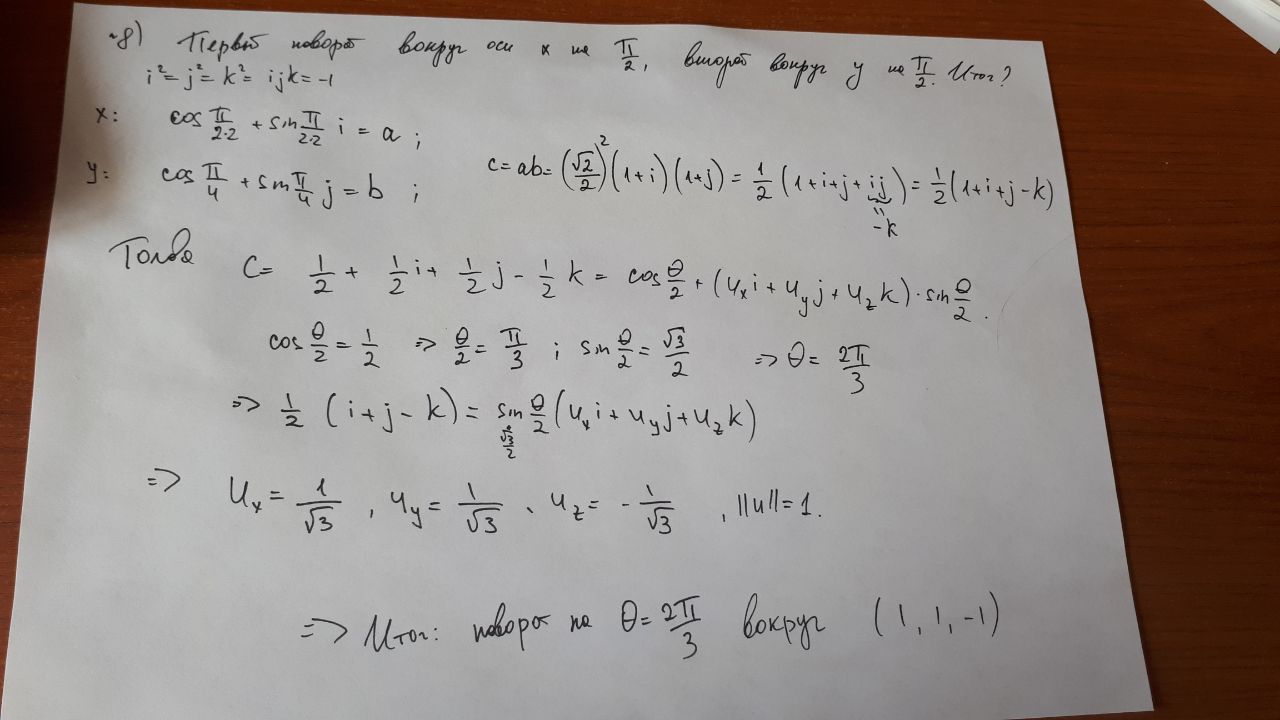 ~8) Первый поворот вокруг оси x на π/2, второй вокруг y на π/2. Итог?
i² = j² = k² = ijk = -1
x: cos π/2·2 + sin π/2·2 i = a ;
y: cos π/4 + sin π/4 j = b ;
c = ab = (√2/2)² (1+i)(1+j) = 1/2 (1+i+j+ij) = 1/2 (1+i+j-k)
" -k
Тогда C = 1/2 + 1/2 i + 1/2 j - 1/2 k = cos θ/2 + (u_x i + u_y j + u_z k) · sin θ/2 .
cos θ/2 = 1/2 => θ/2 = π/3 ; sin θ/2 = √3/2 => θ = 2π/3
=> 1/2 (i + j - k) = sin θ/2 (u_x i + u_y j + u_z k)
" √3/2
=> u_x = 1/√3 , u_y = 1/√3 , u_z = - 1/√3 , ||u|| = 1.
=> Итог: поворот на θ = 2π/3 вокруг (1, 1, -1)